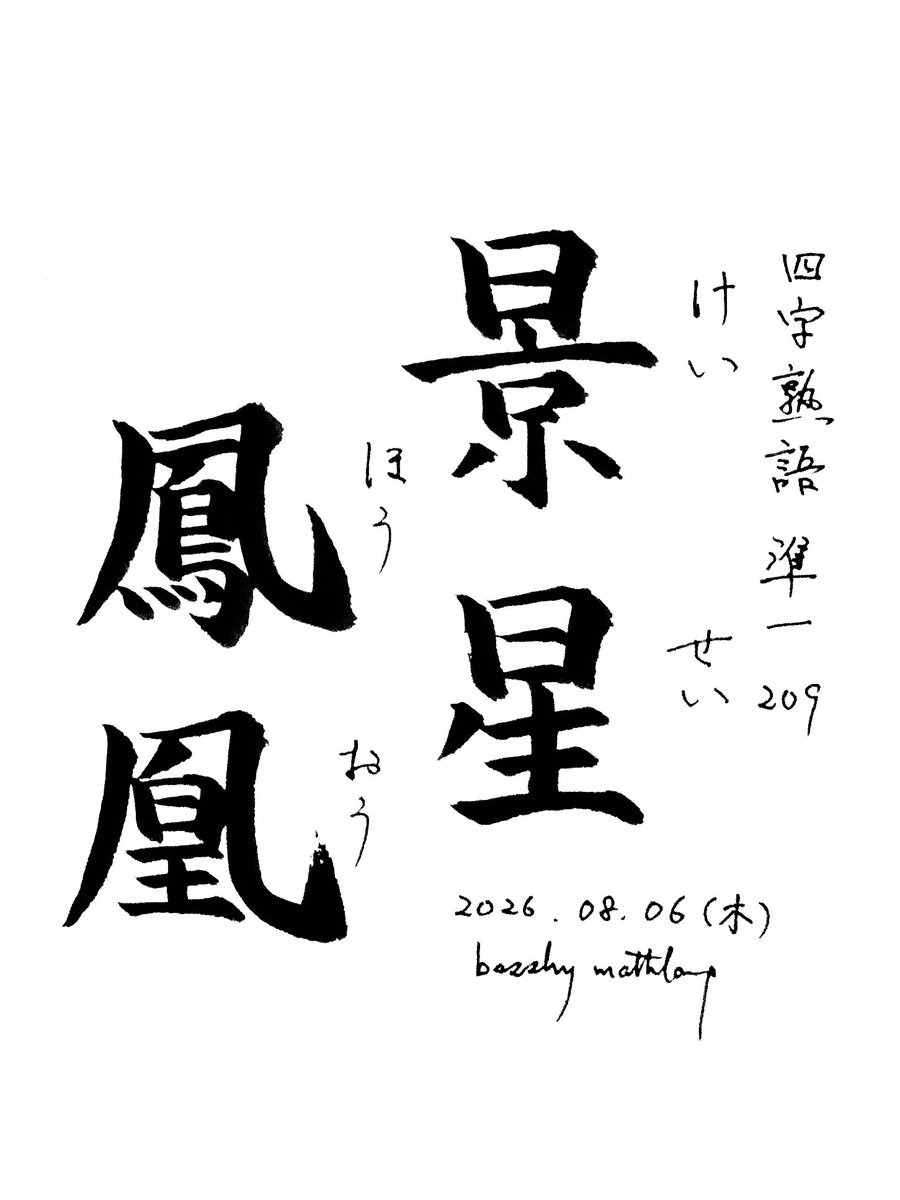 四字熟語 準一 209
けい せい
景星
ほう おう
鳳凰
2026.08.06(木)